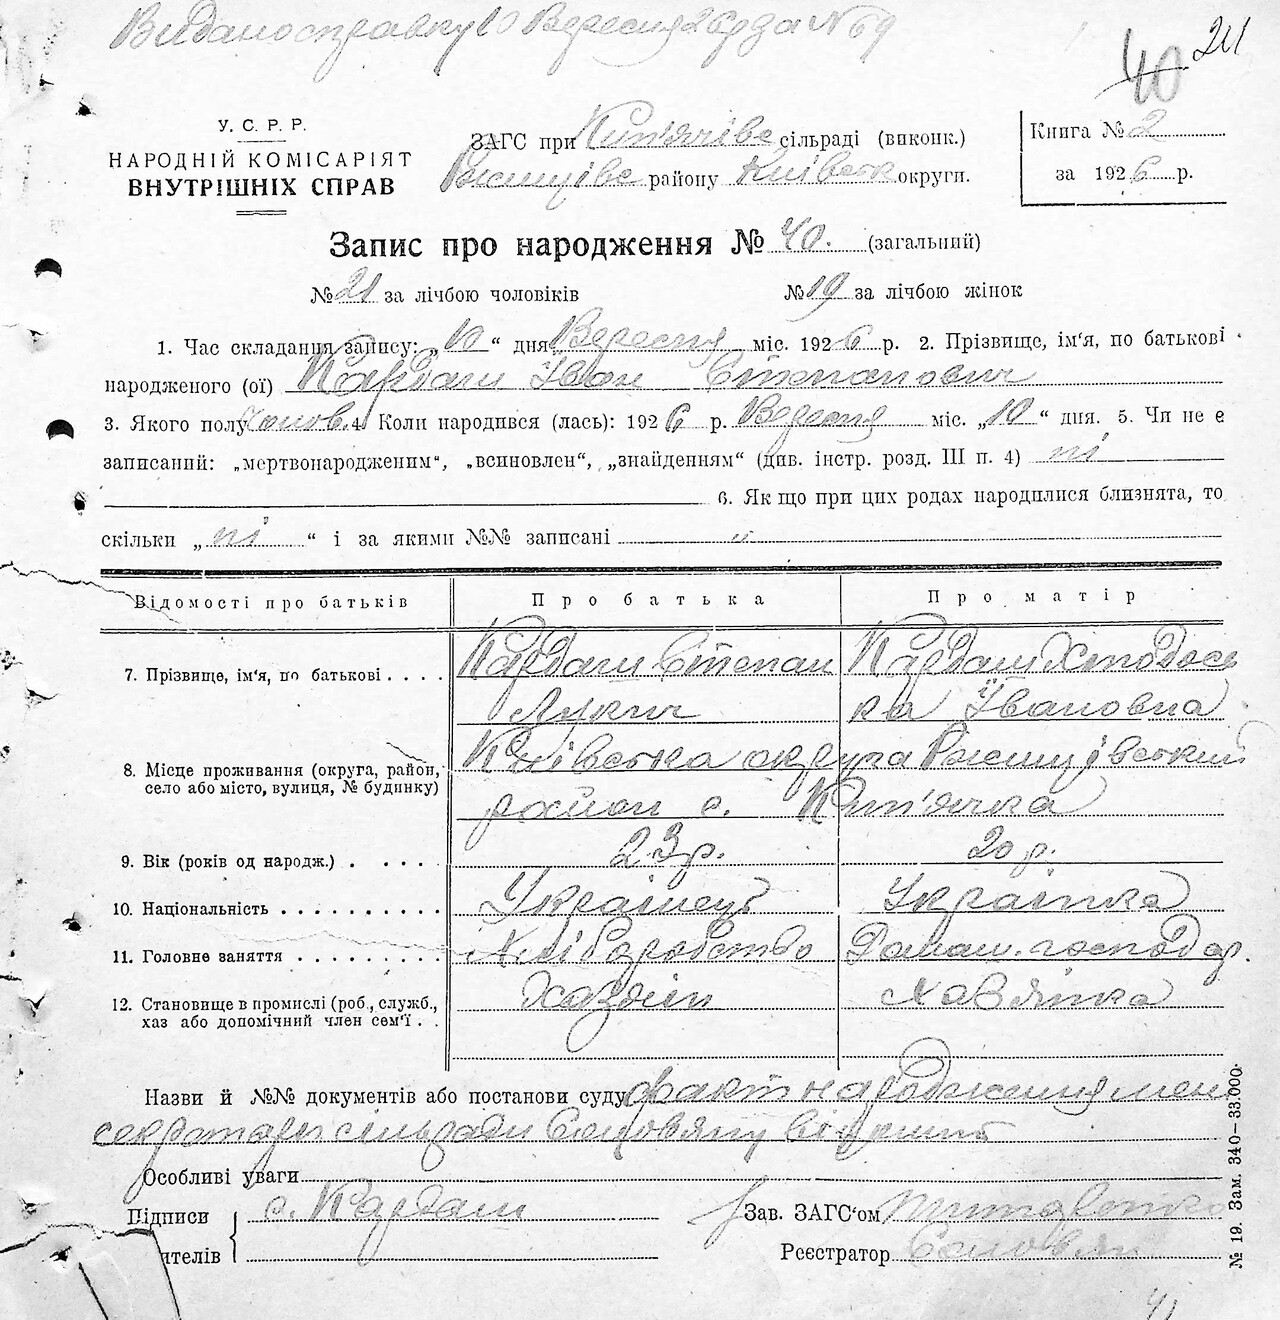 Видано справку 10 Вересня 26 р за №69
40 241
У. С. Р. Р.
НАРОДНІЙ КОМІСАРІЯТ
ВНУТРІШНІХ СПРАВ
ЗАГС при Кип'ячівс сільраді (виконк.)
Ржищівс району Київськ округи.
Книга № 2
за 1926 р.
Запис про народження № 40. (загальний)
№ 21 за лічбою чоловіків № 19 за лічбою жінок
1. Час складання запису: „10“ дня Вересня міс. 1926 р. 2. Прізвище, ім'я, по батькові
народженого (ої) Кардаш Іван Степанович
3. Якого полу чолов. 4. Коли народився (лась): 1926 р. Вересня міс. „10“ дня. 5. Чи не є
записаний: „мертвонародженим“, „всиновлен“, „знайденням“ (див. інстр. розд. III п. 4) ні
6. Як що при цих родах народилися близнята, то
скільки „ні“ і за якими №№ записані „
Відомості про батьків Про батька Про матір
7. Прізвище, ім'я, по батькові . . . . Кардаш Степан Кардаш Хтодось
Лукич ка Івановна
8. Місце проживання (округа, район, Київська округа Ржищівський
село або місто, вулиця, № будинку) район с. Кип'ячка
9. Вік (років од народж.) . . . . . 23 р. 20 р.
10. Національність . . . . . . . . . . Українець Українка
11. Головне заняття . . . . . . . . . Хліборобство Домаш. господар.
12. Становище в промислі (роб., служб., Хазяїн
хаз або допомічний член сем'ї . .
Назви й №№ документів або постанови суду факт народження мені
секретарю сільради Соловяну
Особливі уваги
Підписи с. Кардаш Зав. ЗАГС'ом
ителів Реєстратор Соловян
№ 19. Зам. 340–33.000.